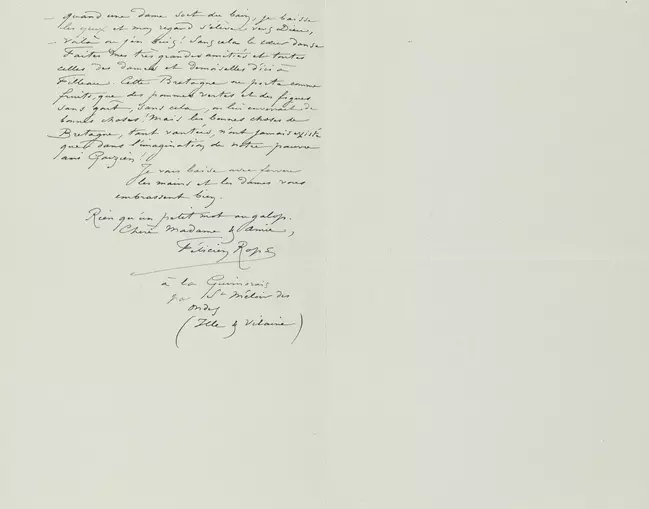 — quand une dame sort du bain, je baisse
les yeux et mon regard s'élève vers Dieu,
— voilà où j'en suis! Sans cela le cœur danse
Faites mes très grandes amitiés et toutes
celles des dames et demoiselles d'ici à
Filleau. Cette Bretagne ne porte comme
fruits, que des pommes vertes et des figues
sans goût, sans cela, on lui enverrait de
bonnes choses! Mais les bonnes choses de
Bretagne, tant vantées, n'ont jamais existé
que dans l'imagination de notre pauvre
ami Gouzien!
Je vous baise avec ferveur
les mains et les dames vous
embrassent bien.
Rien qu'un petit mot au galop.
Chère Madame & Amie,
Félicien Rops
à la Guimorais
par St Méloir des
ondes
(Ille & Vilaine)